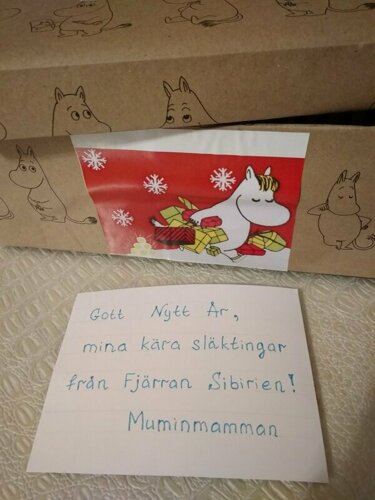 Gott Nytt År,
mina kära släktingar
från Fjärran Sibirien!
Muminmamman